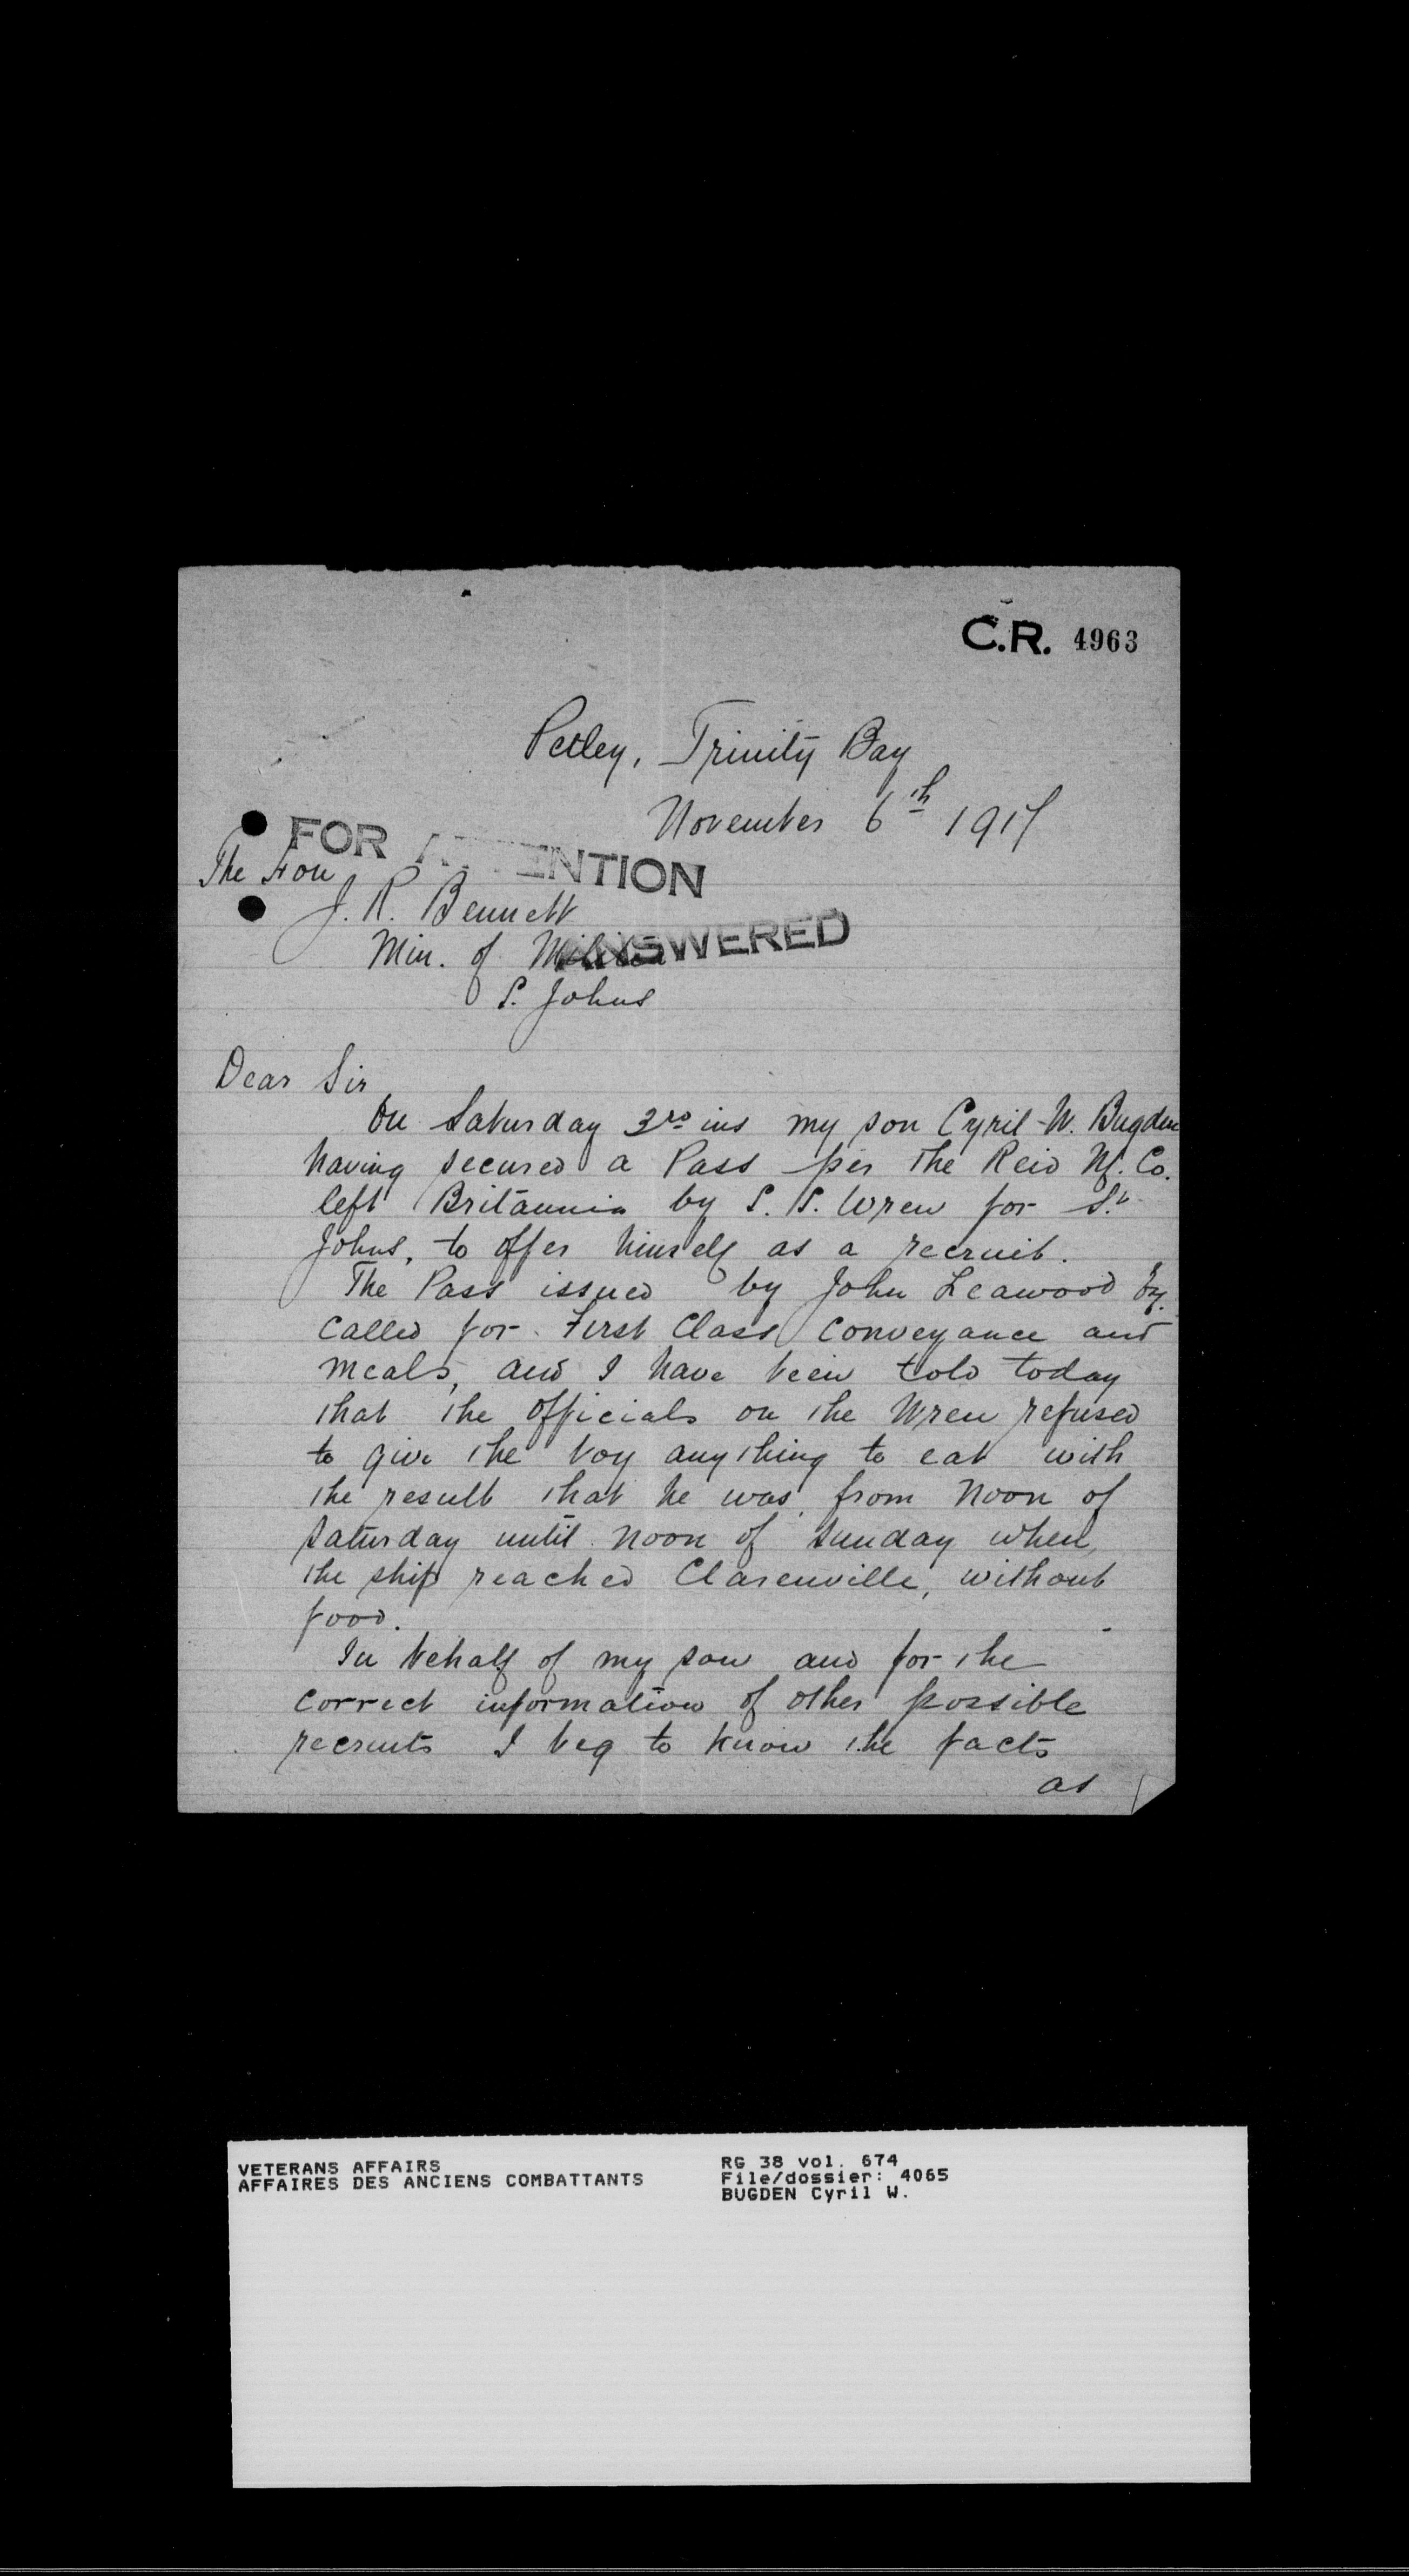 C.R. 4963
Petley, Trinity Bay
November 6th 1917
FOR ATTENTION
The Hon
J. R. Bennett
ANSWERED
Min. of Militia
S. Johns
Dear Sir
On Saturday 3rd ins my son Cyril W. Bugden
having secured a Pass per the Reid Nf. Co.
left Britannia by S. S. Wren for St.
Johns, to offer himself as a recruit.
The Pass issued by John Leawood Esq.
called for First Class conveyance and
meals, and I have been told today
that the officials on the Wren refused
to give the boy anything to eat with
the result that he was, from noon of
Saturday until noon of Sunday when
the ship reached Clarenville, without
food.
In behalf of my son and for the
correct information of other possible
recruits I beg to know the facts
as
VETERANS AFFAIRS
AFFAIRES DES ANCIENS COMBATTANTS
RG 38 vol. 674
File/dossier: 4065
BUGDEN Cyril W.